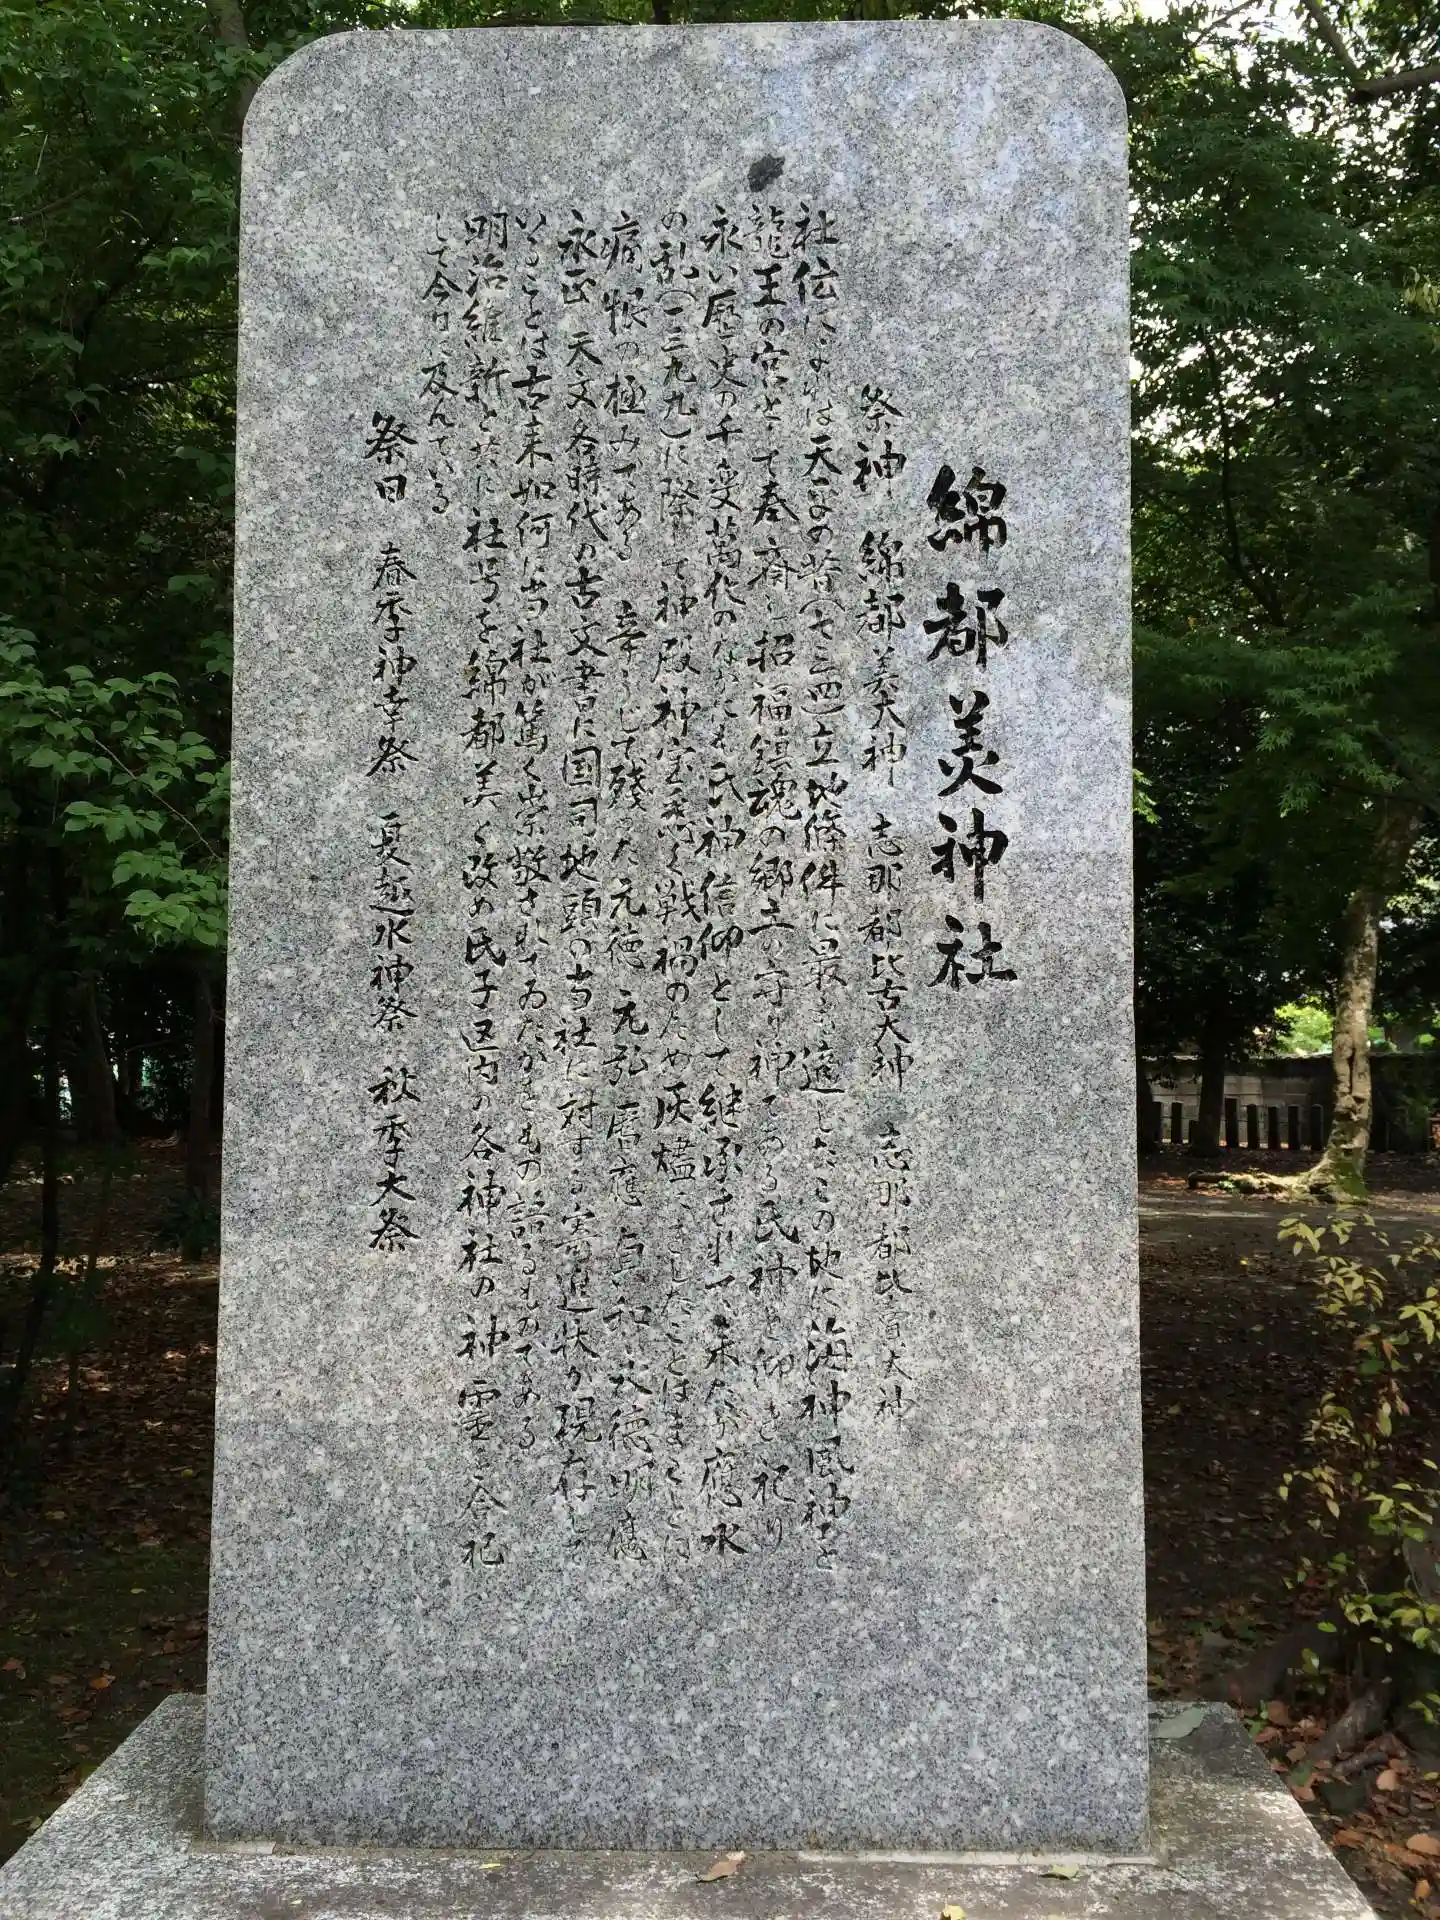 綿都美神社
祭神 綿都美大神 志那都比古大神 志那都比賣大神
社伝によれば天平の昔(七三四)立地條件に最も適したこの地に海神風神を
龍王の宮として奉齋し招福鎮魂の郷土の守り神である氏神と仰ぎ祀り
永い歴史の千変萬化のなかにも氏神信仰として継承されて来たが應永
の乱(一三九九)に際して神殿神宝悉く戦禍のため灰燼に帰したことはまことに
痛恨の極みである 辛うじて残った元徳 元弘 暦應 貞和 大徳 明應
永正 天文各時代の古文書に国司地頭の当社に対する寄進状が現存して
いることは古来如何に当社が篤く崇敬されてゐたかをもの語るものである
明治維新と共に社号を綿都美と改め氏子区内の各神社の神霊を合祀
して今日に及んでいる
祭日 春季神幸祭 夏越水神祭 秋季大祭